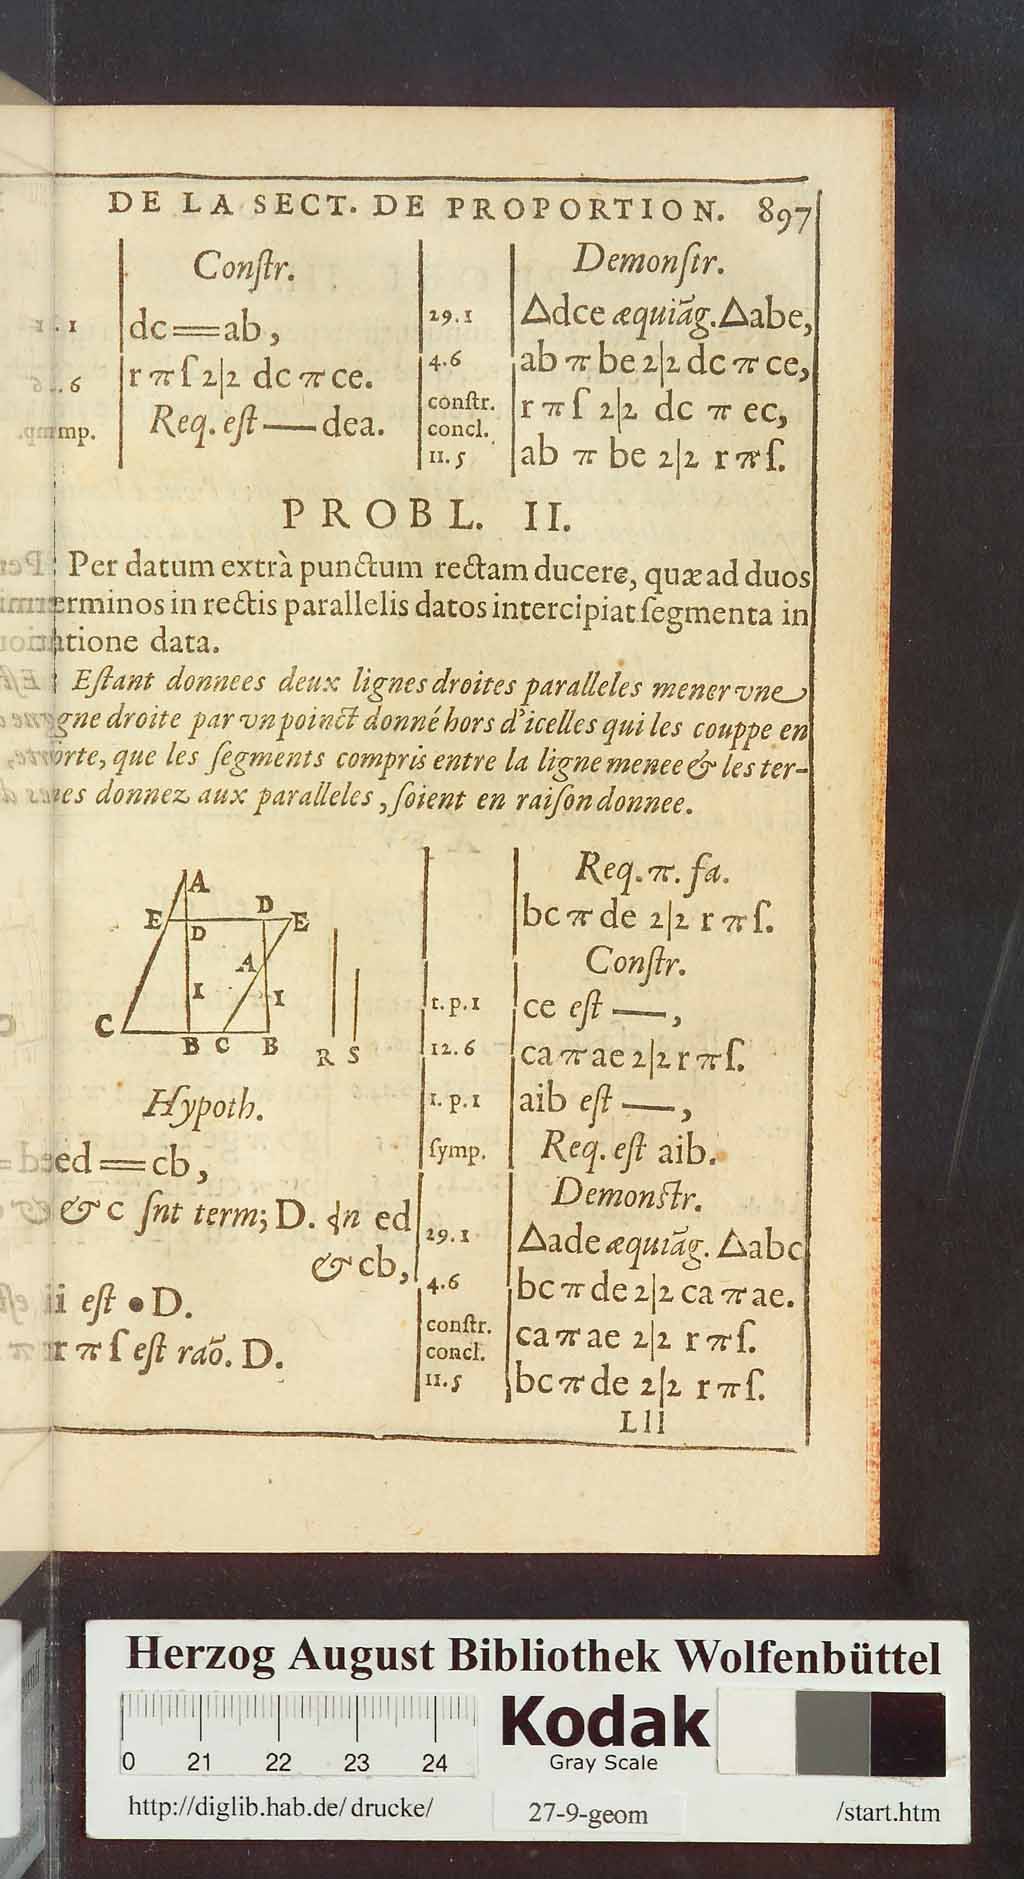 DE LA SECT. DE PROPORTION. 897
Conſtr.
dc══ab,
r π ſ 2|2 dc π ce.
Req. eſt — dea.
Demonſtr.
29.1 △dce æquiãg. △abe,
4.6 ab π be 2|2 dc π ce,
conſtr. r π ſ 2|2 dc π ec,
concl.
11.5 ab π be 2|2 r π ſ.
PROBL. II.
Per datum extrà punctum rectam ducere, quæ ad duos
erminos in rectis parallelis datos intercipiat ſegmenta in
atione data.
Eſtant donnees deux lignes droites paralleles mener vne
gne droite par vn poinct donné hors d'icelles qui les couppe en
orte, que les ſegments compris entre la ligne menee & les ter-
es donnez aux paralleles, ſoient en raiſon donnee.
A
E D D E
A
I I
C B C B R S
Hypoth.
ed══cb,
& c ſnt term; D. in ed
& cb,
i eſt • D.
r π ſ eſt raõ. D.
Req. π. fa.
bc π de 2|2 r π ſ.
Conſtr.
1.p.1 ce eſt —,
12.6 ca π ae 2|2 r π ſ.
1.p.1 aib eſt —,
ſymp. Req. eſt aib.
Demonſtr.
29.1 △ade æquiãg. △abc
4.6 bc π de 2|2 ca π ae.
conſtr. ca π ae 2|2 r π ſ.
concl.
11.5 bc π de 2|2 r π ſ.
Lll
Herzog August Bibliothek Wolfenbüttel
0 21 22 23 24
Kodak
Gray Scale
http://diglib.hab.de/drucke/ 27-9-geom /start.htm